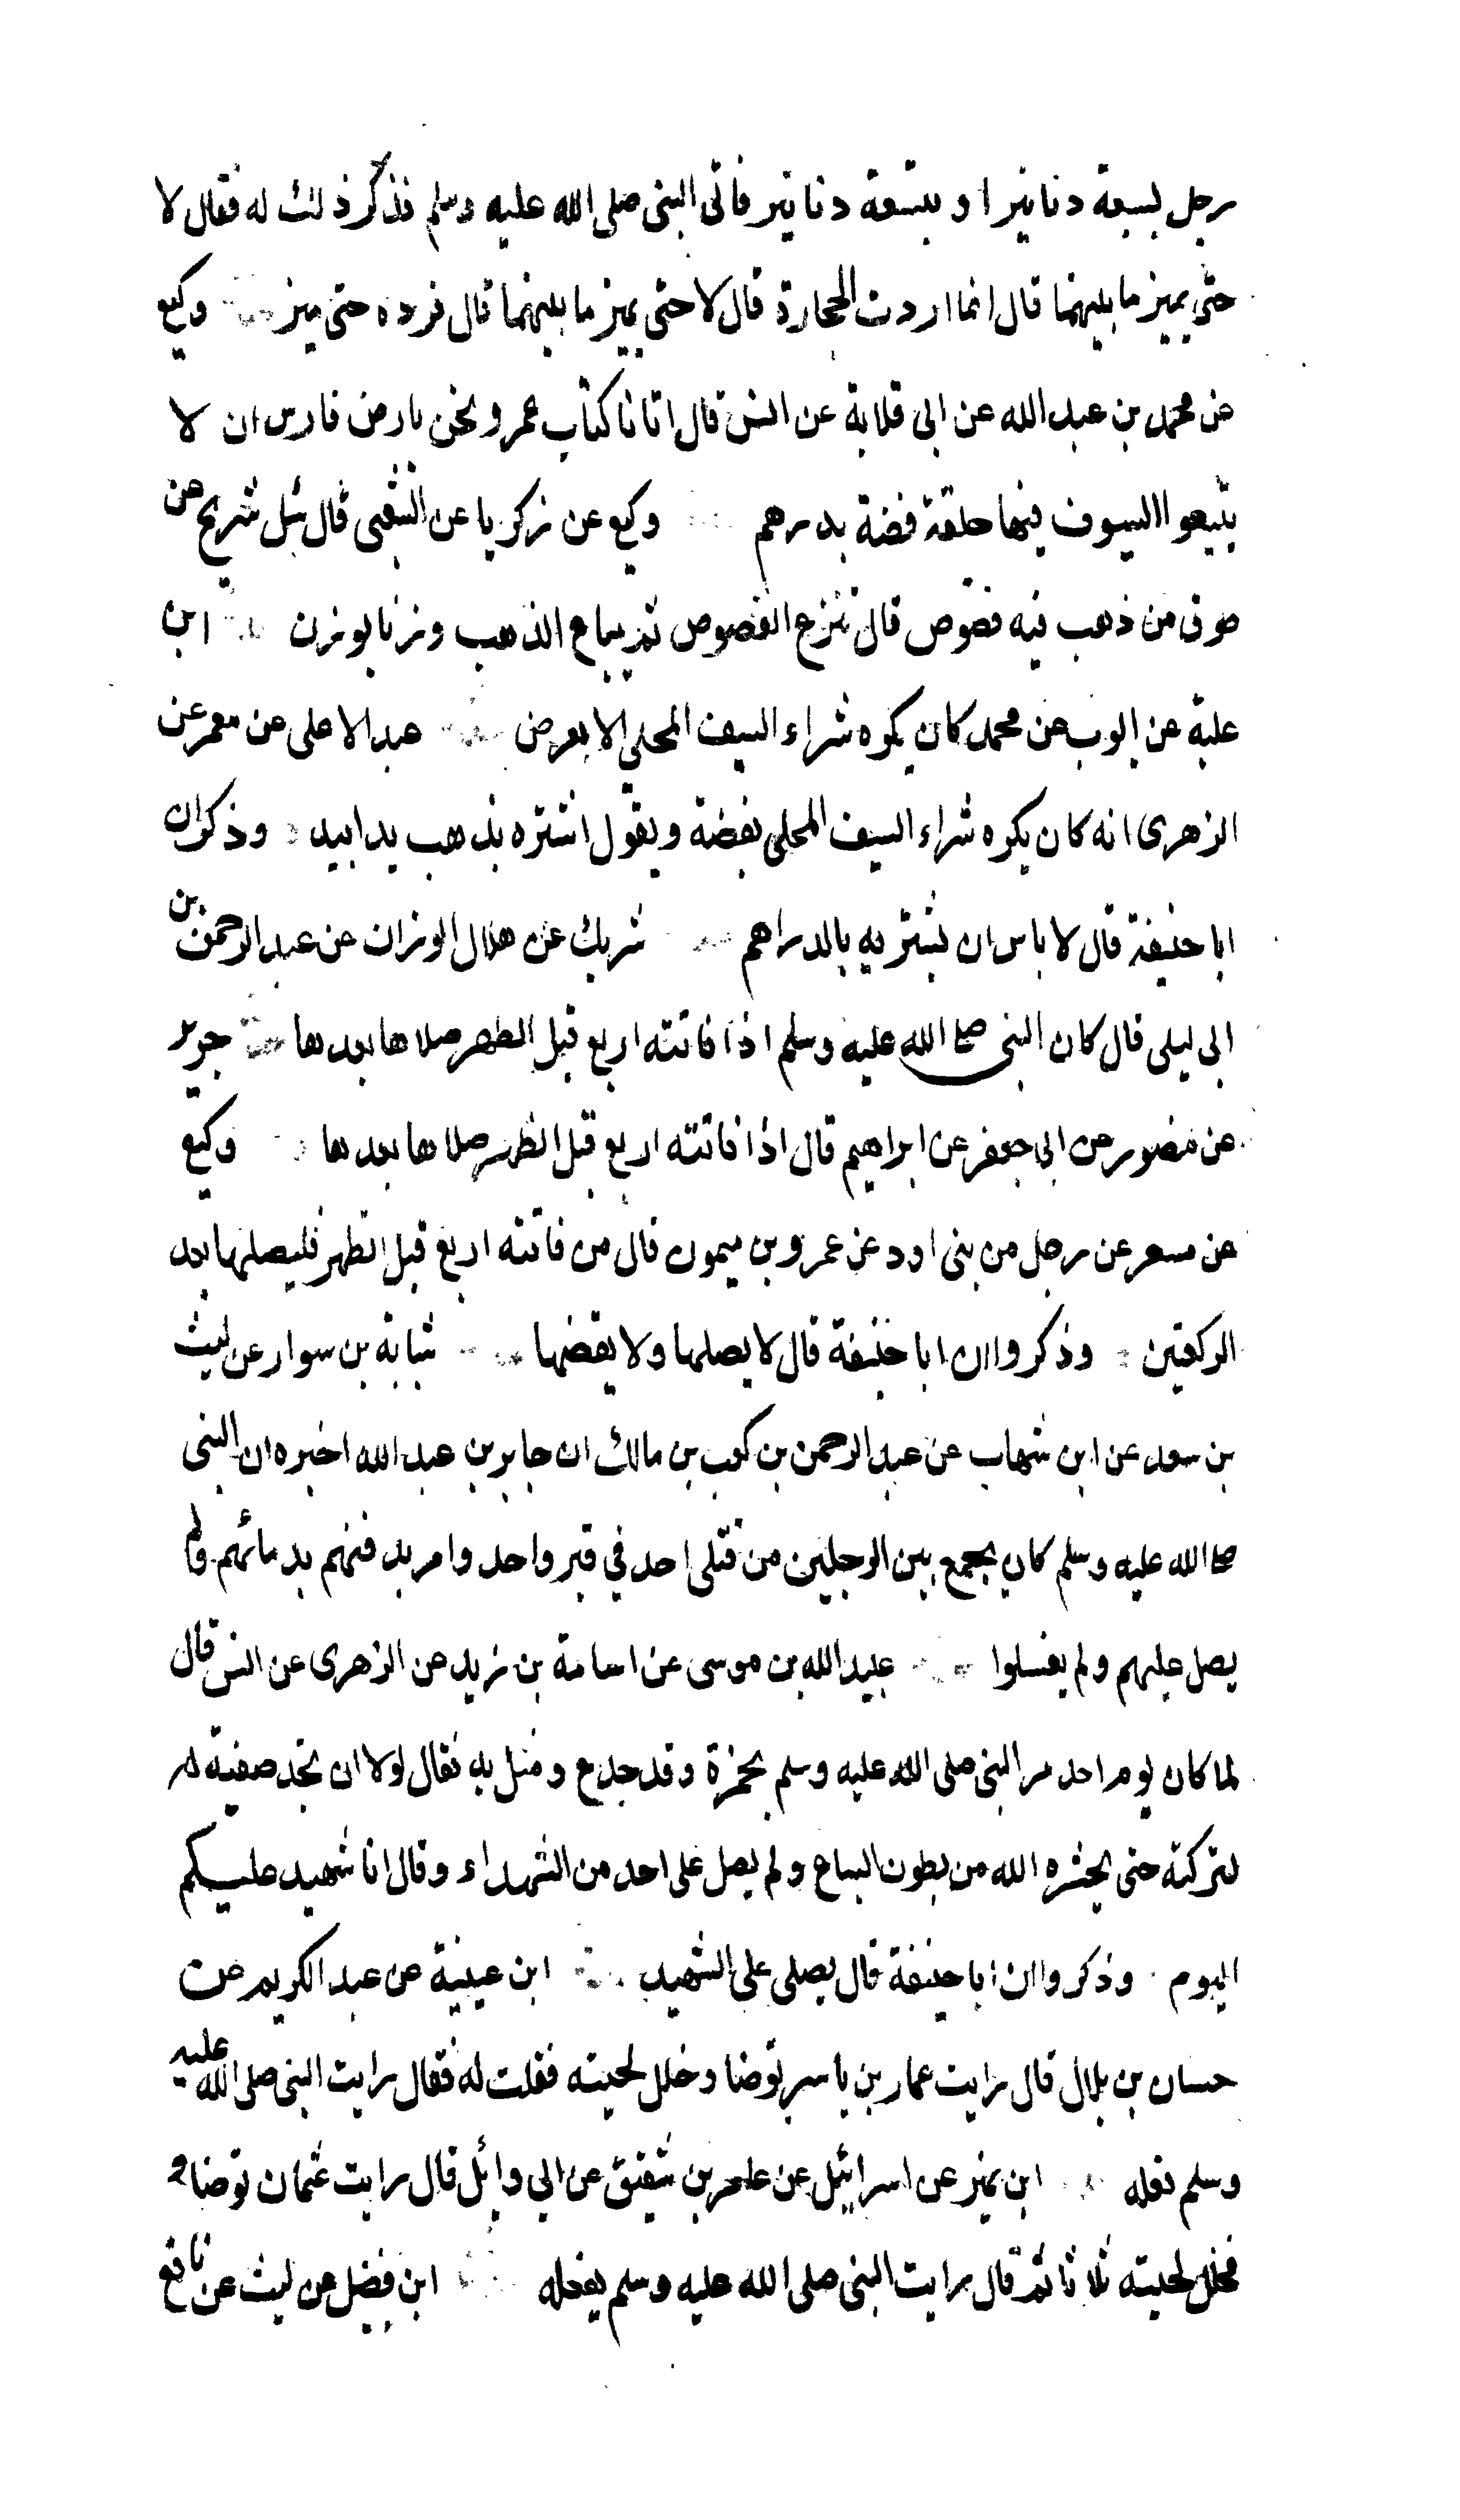 رجل بسبعة دنانير او بتسعة دنانير فاتى النبى صلى الله عليه وسلم فذكر ذلك له فقال لا
حتى يميز ما بينهما قال انما اردت الحجارة قال لا حتى يميز ما بينهما قال فرده حتى ميز وكيع
عن محمد بن عبد الله عن ابى قلابة عن انس قال اتانا كتاب عمر ونحن بارض فارس ان لا
تبيعوا السيوف فيها حلقة فضة بدرهم وكيع عن زكريا عن الشعبى قال سئل شريح عن
طوق من ذهب فيه فصوص قال تنزع الفصوص ثم يباع الذهب وزنا بوزن ابن
علية عن ايوب عن محمد كان يكره شراء السيف المحلى الا بعرض عبد الاعلى عن معمر عن
الزهرى انه كان يكره شراء السيف المحلى بفضة ويقول اشتره بذهب يدا بيد وذكر ان
ابا حنيفة قال لا باس ان يشتريه بالدراهم شريك عن هلال الوزان عن عبد الرحمن بن
ابى ليلى قال كان النبى صلى الله عليه وسلم اذا فاتته اربع قبل الظهر صلاها بعدها جرير
عن منصور عن ابى جعفر عن ابراهيم قال اذا فاتته اربع قبل الظهر صلاها بعدها وكيع
عن مسعر عن رجل من بنى اود عن عمرو بن ميمون قال من فاتته اربع قبل الظهر فليصلها بعد
الركعتين وذكروا ان ابا حنيفة قال لا يصليها ولا يقضيها شبابة بن سوار عن ليث
بن سعد عن ابن شهاب عن عبد الرحمن بن كعب بن مالك ان جابر بن عبد الله اخبره ان النبى
صلى الله عليه وسلم كان يجمع بين الرجلين من قتلى احد في قبر واحد وامر بدفنهم بدمائهم ولم
يصل عليهم ولم يغسلوا عبيد الله بن موسى عن اسامة بن زيد عن الزهرى عن انس قال
لما كان يوم احد مر النبى صلى الله عليه وسلم بحمزة وقد جدع ومثل به فقال لولا ان تجد صفية
لتركته حتى يحشره الله من بطون السباع ولم يصل على احد من الشهداء وقال انا شهيد عليكم
اليوم وذكروا ان ابا حنيفة قال يصلى على الشهيد ابن عيينة عن عبد الكريم عن
حسان بن بلال قال رايت عمار بن ياسر توضا وخلل لحيته فقلت له فقال رايت النبى صلى الله عليه
وسلم فعله ابن نمير عن اسرائيل عن عامر بن شقيق عن ابي وائل قال رايت عثمان توضا
فخلل لحيته ثلاثا ثم قال رايت النبى صلى الله عليه وسلم يفعله ابن فضيل عن ليث عن نافع